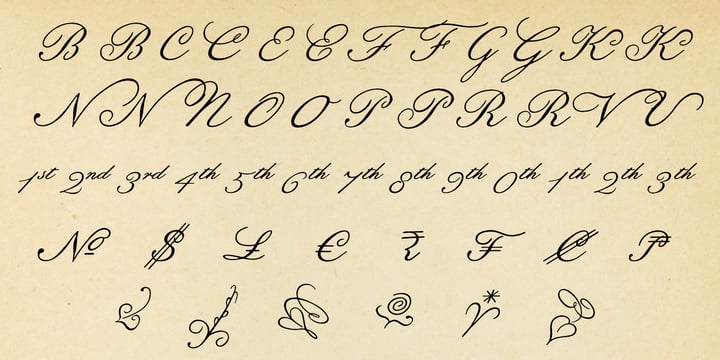 B B C C E E F F G G K K
N N N O O P P R R V V
1st 2nd 3rd 4th 5th 6th 7th 8th 9th 0th 1th 2th 3th
№ $ £ € ₹ ₣ ₡ ₱